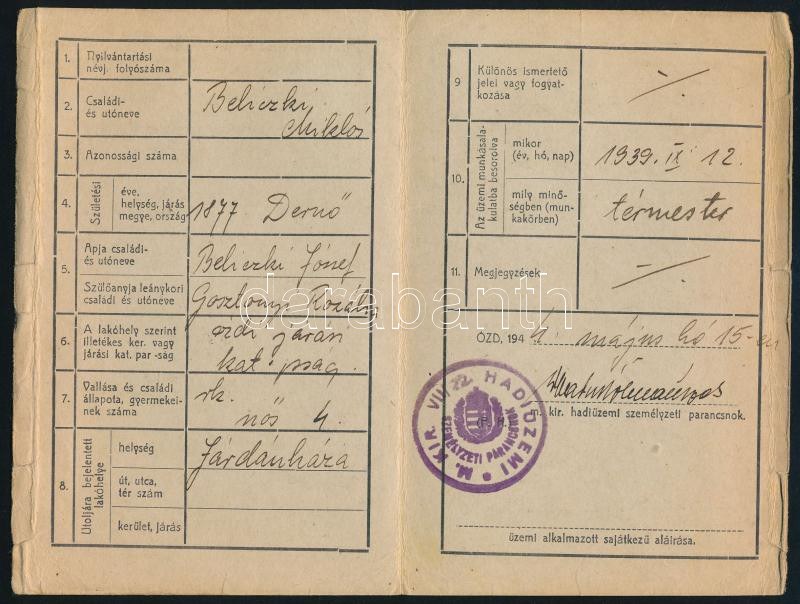 1. Nyilvántartási
névj. folyószáma
2. Családi-
és utóneve
Beliczki
Miklós
3. Azonossági száma
4. Születési
éve,
helység, járás
megye, ország
1877 Dernő
5. Apja családi-
és utóneve
Beliczki József
Szülőanyja leánykori
családi és utóneve
Gosztonyi Rozália
6. A lakóhely szerint
illetékes ker. vagy
járási kat. par-ság
ózdi járási
kat. pság.
7. Vallása és családi
állapota, gyermekei-
nek száma
rk.
nős 4.
8. Utoljára bejelentett
lakóhelye
helység
Járdánháza
út, utca,
tér szám
kerület, járás
9. Különös ismertető
jelei vagy fogyat-
kozása
10. Az üzemi munkásala-
kulatba besorolva
mikor
(év, hó, nap)
1939. IX. 12.
mily minő-
ségben (mun-
kakörben)
térmester
11. Megjegyzések
ÓZD, 194 május hó 15-én
m. kir. hadiüzemi személyzeti parancsnok.
(P. H.)
M. KIR. VII/22. HADIÜZEMI
SZEMÉLYZETI PARANCSNOK
üzemi alkalmazott sajátkezű aláírása.
darabanth